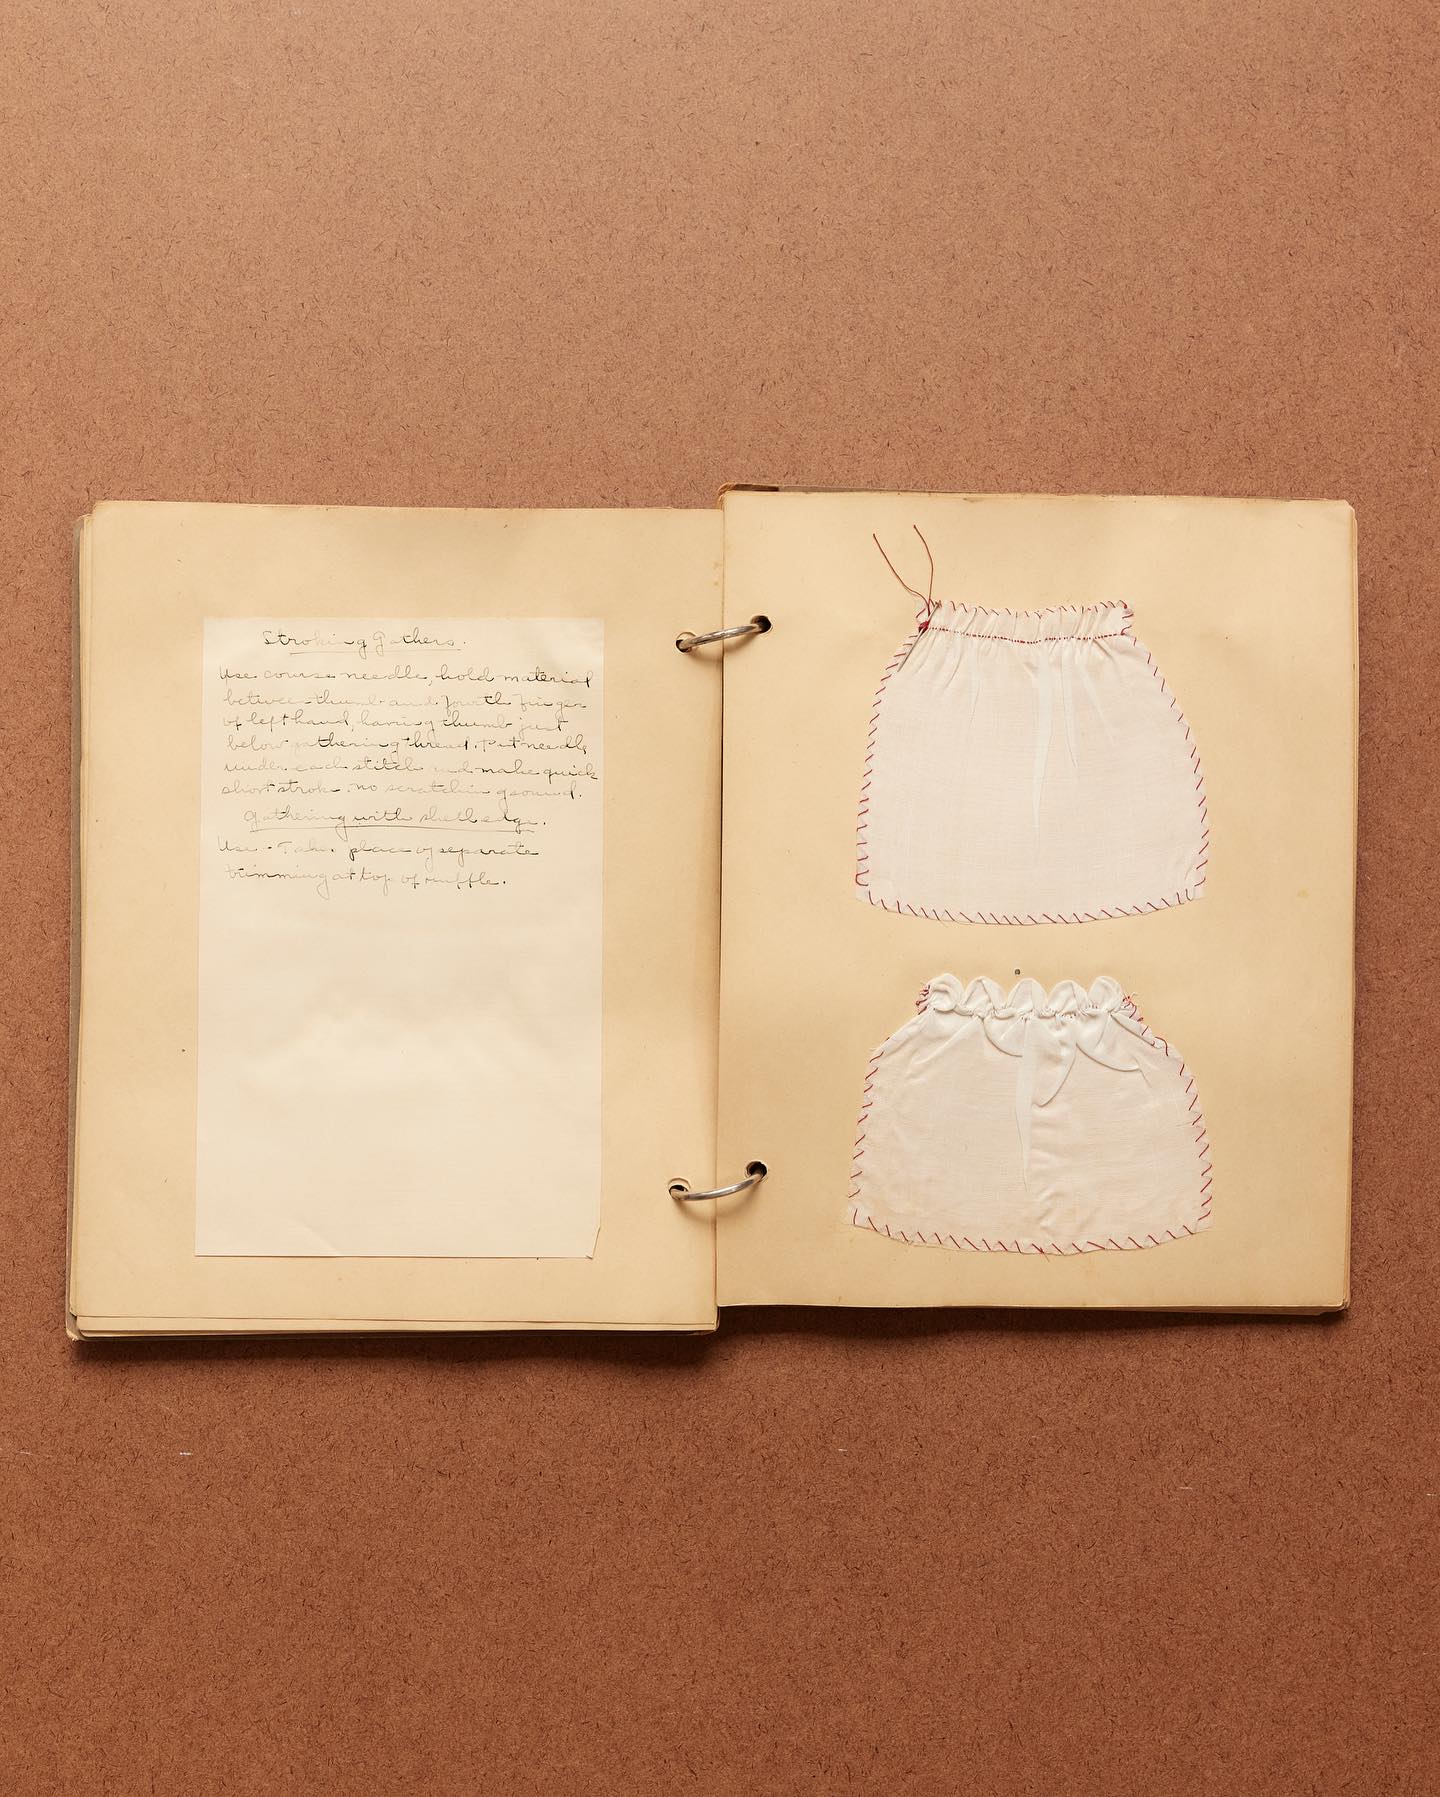 Stroking Gathers.
Use course needle, hold material
between thumb and fourth finger
of left hand, having thumb just
below gathering thread. Put needle
under each stitch and make quick
short stroke. no scratching sound.
Gathering with shell edge.
Use - Takes place of separate
trimming at top of ruffle.